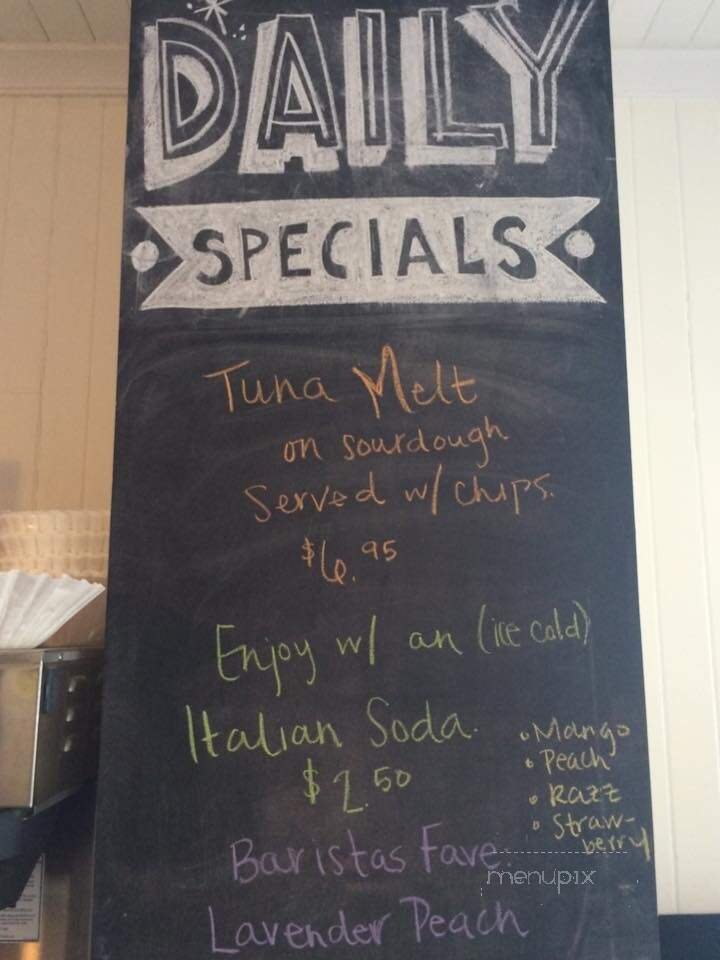 DAILY
SPECIALS
Tuna Melt
on sourdough
Served w/ chips.
$6.95
Enjoy w/ an (ice cold)
Italian Soda.
$2.50
• Mango
• Peach
• Razz
• Straw-
berry
Baristas Fave:
Lavender Peach
menupix